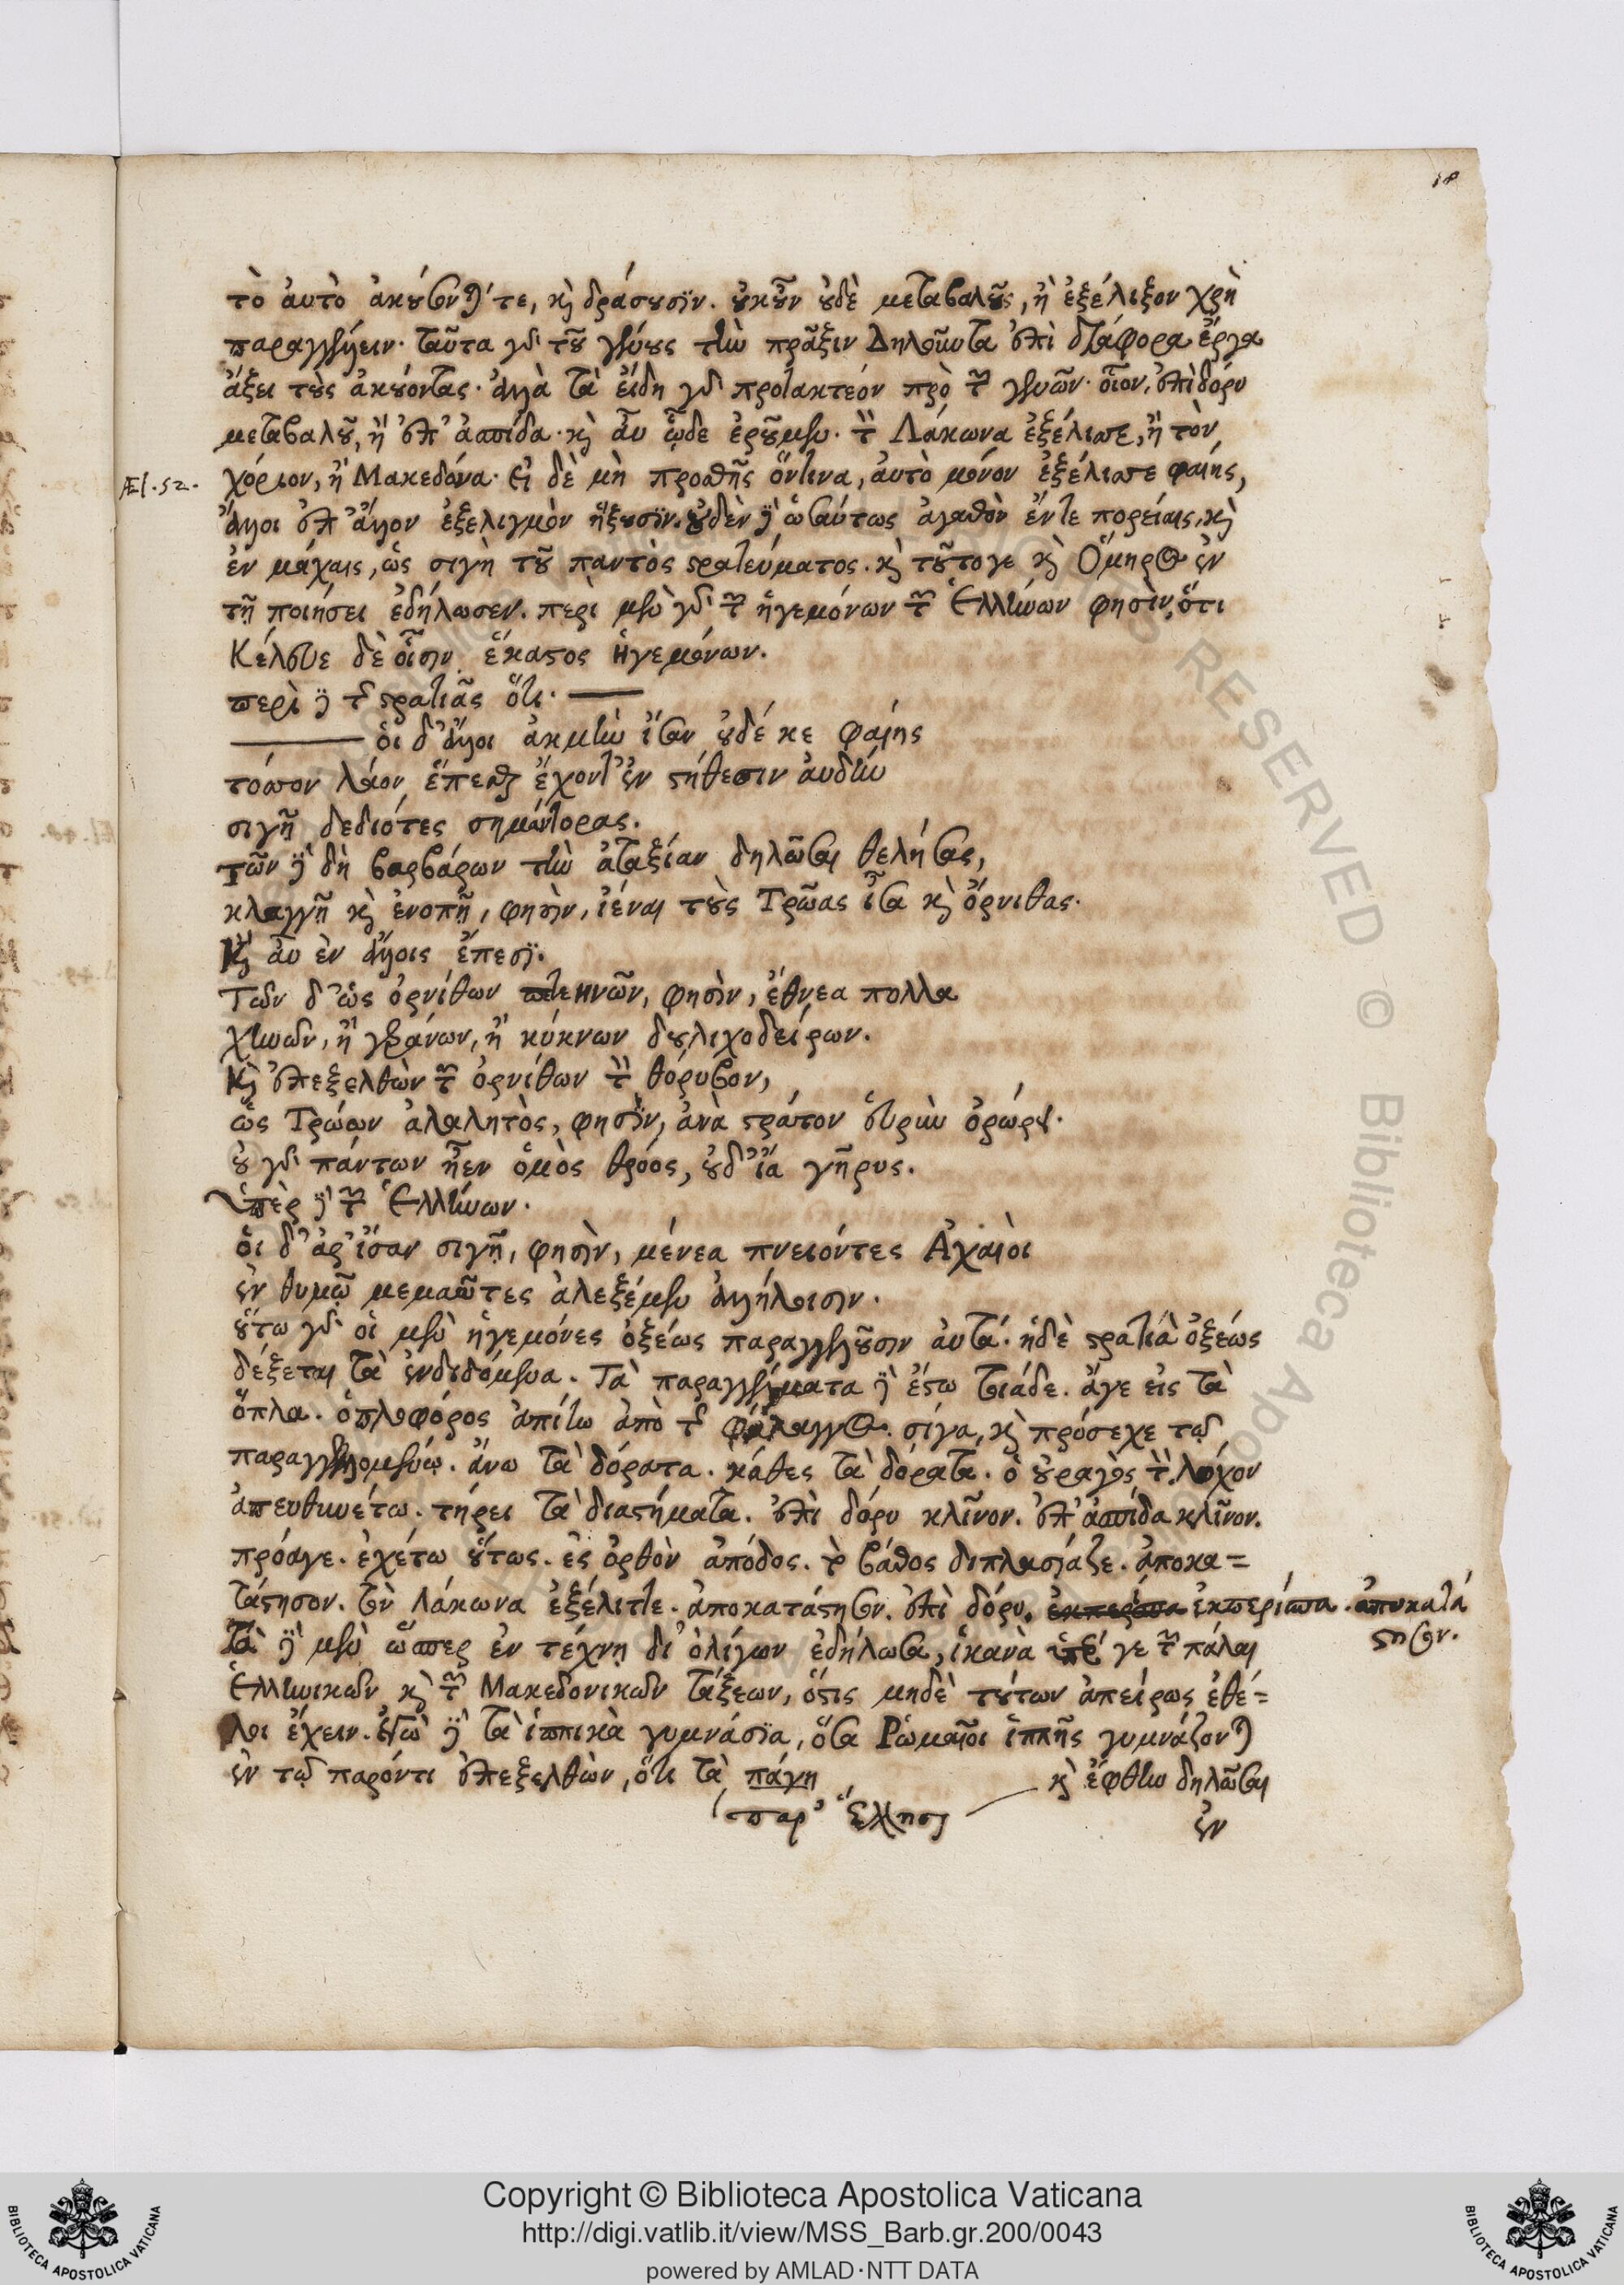 18
τὸ ἀυτὸ ἀκούσονταί τε, καὶ δράσουσϊν. οὐκοῦν οὐδὲ μεταβαλοῦ, ἢ ἐξέλιξον χρὴ
παραγγέλλειν· ταῦτα γὰρ τοῦ γένους τὴν πρᾶξιν δηλοῦντα ἐπὶ διάφορα ἔργα
ἄξει τοὺς ἀκούοντας· ἀλλὰ τὰ εἴδη γὰρ προτακτέον πρὸ τῶν γενῶν· οἷον, ἐπὶ δόρυ
μεταβαλοῦ, ἢ ἐπ' ἀσπίδα· καὶ ἂυ ὧδε ἐροῦμεν· τὸν Λάκωνα ἐξέλισσε, ἢ τὸν
Æl. 52. χόριον, ἢ Μακεδόνα· εἰ δὲ μὴ προσθῆς ὅντινα, ἀυτὸ μόνον ἐξέλισσε φαίης,
ἄλλοι ἐπ' ἄλλον ἐξελιγμὸν ἥξουσϊν. οὐδὲν δὲ ὡσαύτως ἀγαθὸν ἔν τε πορείαις, καὶ
ἐν μάχαις, ὡς σιγὴ τοῦ παντὸς στρατεύματος. καὶ τοῦτο γε καὶ Ὅμηρος ἐν
τῇ ποιήσει ἐδήλωσεν. περὶ μὲν γὰρ τῶν ἡγεμόνων τῶν Ἑλλήνων φησὶν, ὅτι
Κέλευε δὲ οἷσιν ἕκαστος ἡγεμόνων.
περὶ δὲ τῆς στρατιᾶς ὅτι· —
— ὁι δ' ἄλλοι ἀκμὴν ἴσαν οὐδέ κε φαίης
τόσσον λάον ἕπεσθαι ἔχοντ' ἐν στήθεσιν ἀυδὴν
σιγῇ δεδιότες σημάντορας.
τῶν δὲ δὴ βαρβάρων τὴν ἀταξίαν δηλῶσαι θελήσας,
κλαγγῇ καὶ ἐνοπῇ, φησὶν, ἰέναι τοὺς Τρῶας ἶσα καὶ ὄρνιθας.
Καὶ ἂυ ἐν ἄλλοις ἔπεσϊ.
Τῶν δ' ὡς ὀρνίθων πετεηνῶν, φησὶν, ἔθνεα πολλα
χηνῶν, ἢ γεράνων, ἢ κύκνων δουλιχοδείρων.
Καὶ ἐπεξελθὼν τῶν ὀρνίθων τὸν θόρυβον,
ὡς Τρώων ἀλαλητὸς, φησὶν, ἀνὰ στράτον ἐυρὺν ὀρώρει.
οὐ γὰρ πάντων ἦεν ὁμὸς θρόος, οὐδ' ἴα γῆρυς.
ὑπὲρ δὲ τῶν Ἑλλήνων.
ὁι δ' ἀρ' ἴσαν σιγῇ, φησὶν, μένεα πνειόντες Ἀχαιοὶ
ἐν θυμῷ μεμαῶτες ἀλεξέμεν ἀλλήλοισιν.
οὕτω γὰρ οἱ μὲν ἡγεμόνες ὀξέως παραγγελοῦσιν ἀυτά. ἡ δὲ στρατιὰ ὀξέως
δέξεται τὰ ἐνδιδόμενα. Τὰ παραγγέλματα δὲ ἔστω τοιάδε. ἄγε εἰς τὰ
ὅπλα. ὁπλοφόρος ἀπίτω ἀπὸ τῆς φάλαγγος. σίγα, καὶ πρόσεχε τῷ
παραγγελλομένῳ. ἄνω τὰ δόρατα. κάθες τὰ δόρατα. ὁ οὐραγὸς τὸν λόχον
ἀπευθυνέτω. τήρει τὰ διαστήματα. ἐπὶ δόρυ κλῖνον. ἐπ' ἀσπίδα κλῖνον.
πρόαγε. ἐχέτω οὕτως. ἐς ὀρθὸν ἀπόδος. τὸ βάθος διπλασίαζε. ἀποκα=
τάστησον. τὸν Λάκωνα ἐξέλιττε. ἀποκατάστησον. ἐπὶ δόρυ. ἐκπερίσπα. ἀποκατά
στησον.
Τὰ δὲ μὲν ὥσπερ ἐν τέχνῃ δι' ὀλίγων ἐδήλωσα, ἱκανὰ ὑπέρ γε τῶν πάλαι
Ἑλληνικῶν καὶ τῶν Μακεδονικῶν τάξεων, ὅστις μηδὲ τούτων ἀπείρως ἐθέ=
λοι ἔχειν. ἐγὼ δὲ τὰ ἱππικὰ γυμνάσϊα, ὅσα Ῥωμαῖοι ἱππῆς γυμνάζονται
ἐν τῷ παρόντι ἐπεξελθὼν, ὅτι τὰ πάγη καὶ ἔφθην δηλῶσαι
παρ' Ἕλλησι
ἐν
Copyright © Biblioteca Apostolica Vaticana
http://digi.vatlib.it/view/MSS_Barb.gr.200/0043
powered by AMLAD·NTT DATA
BIBLIOTECA APOSTOLICA VATICANA
BIBLIOTECA APOSTOLICA VATICANA